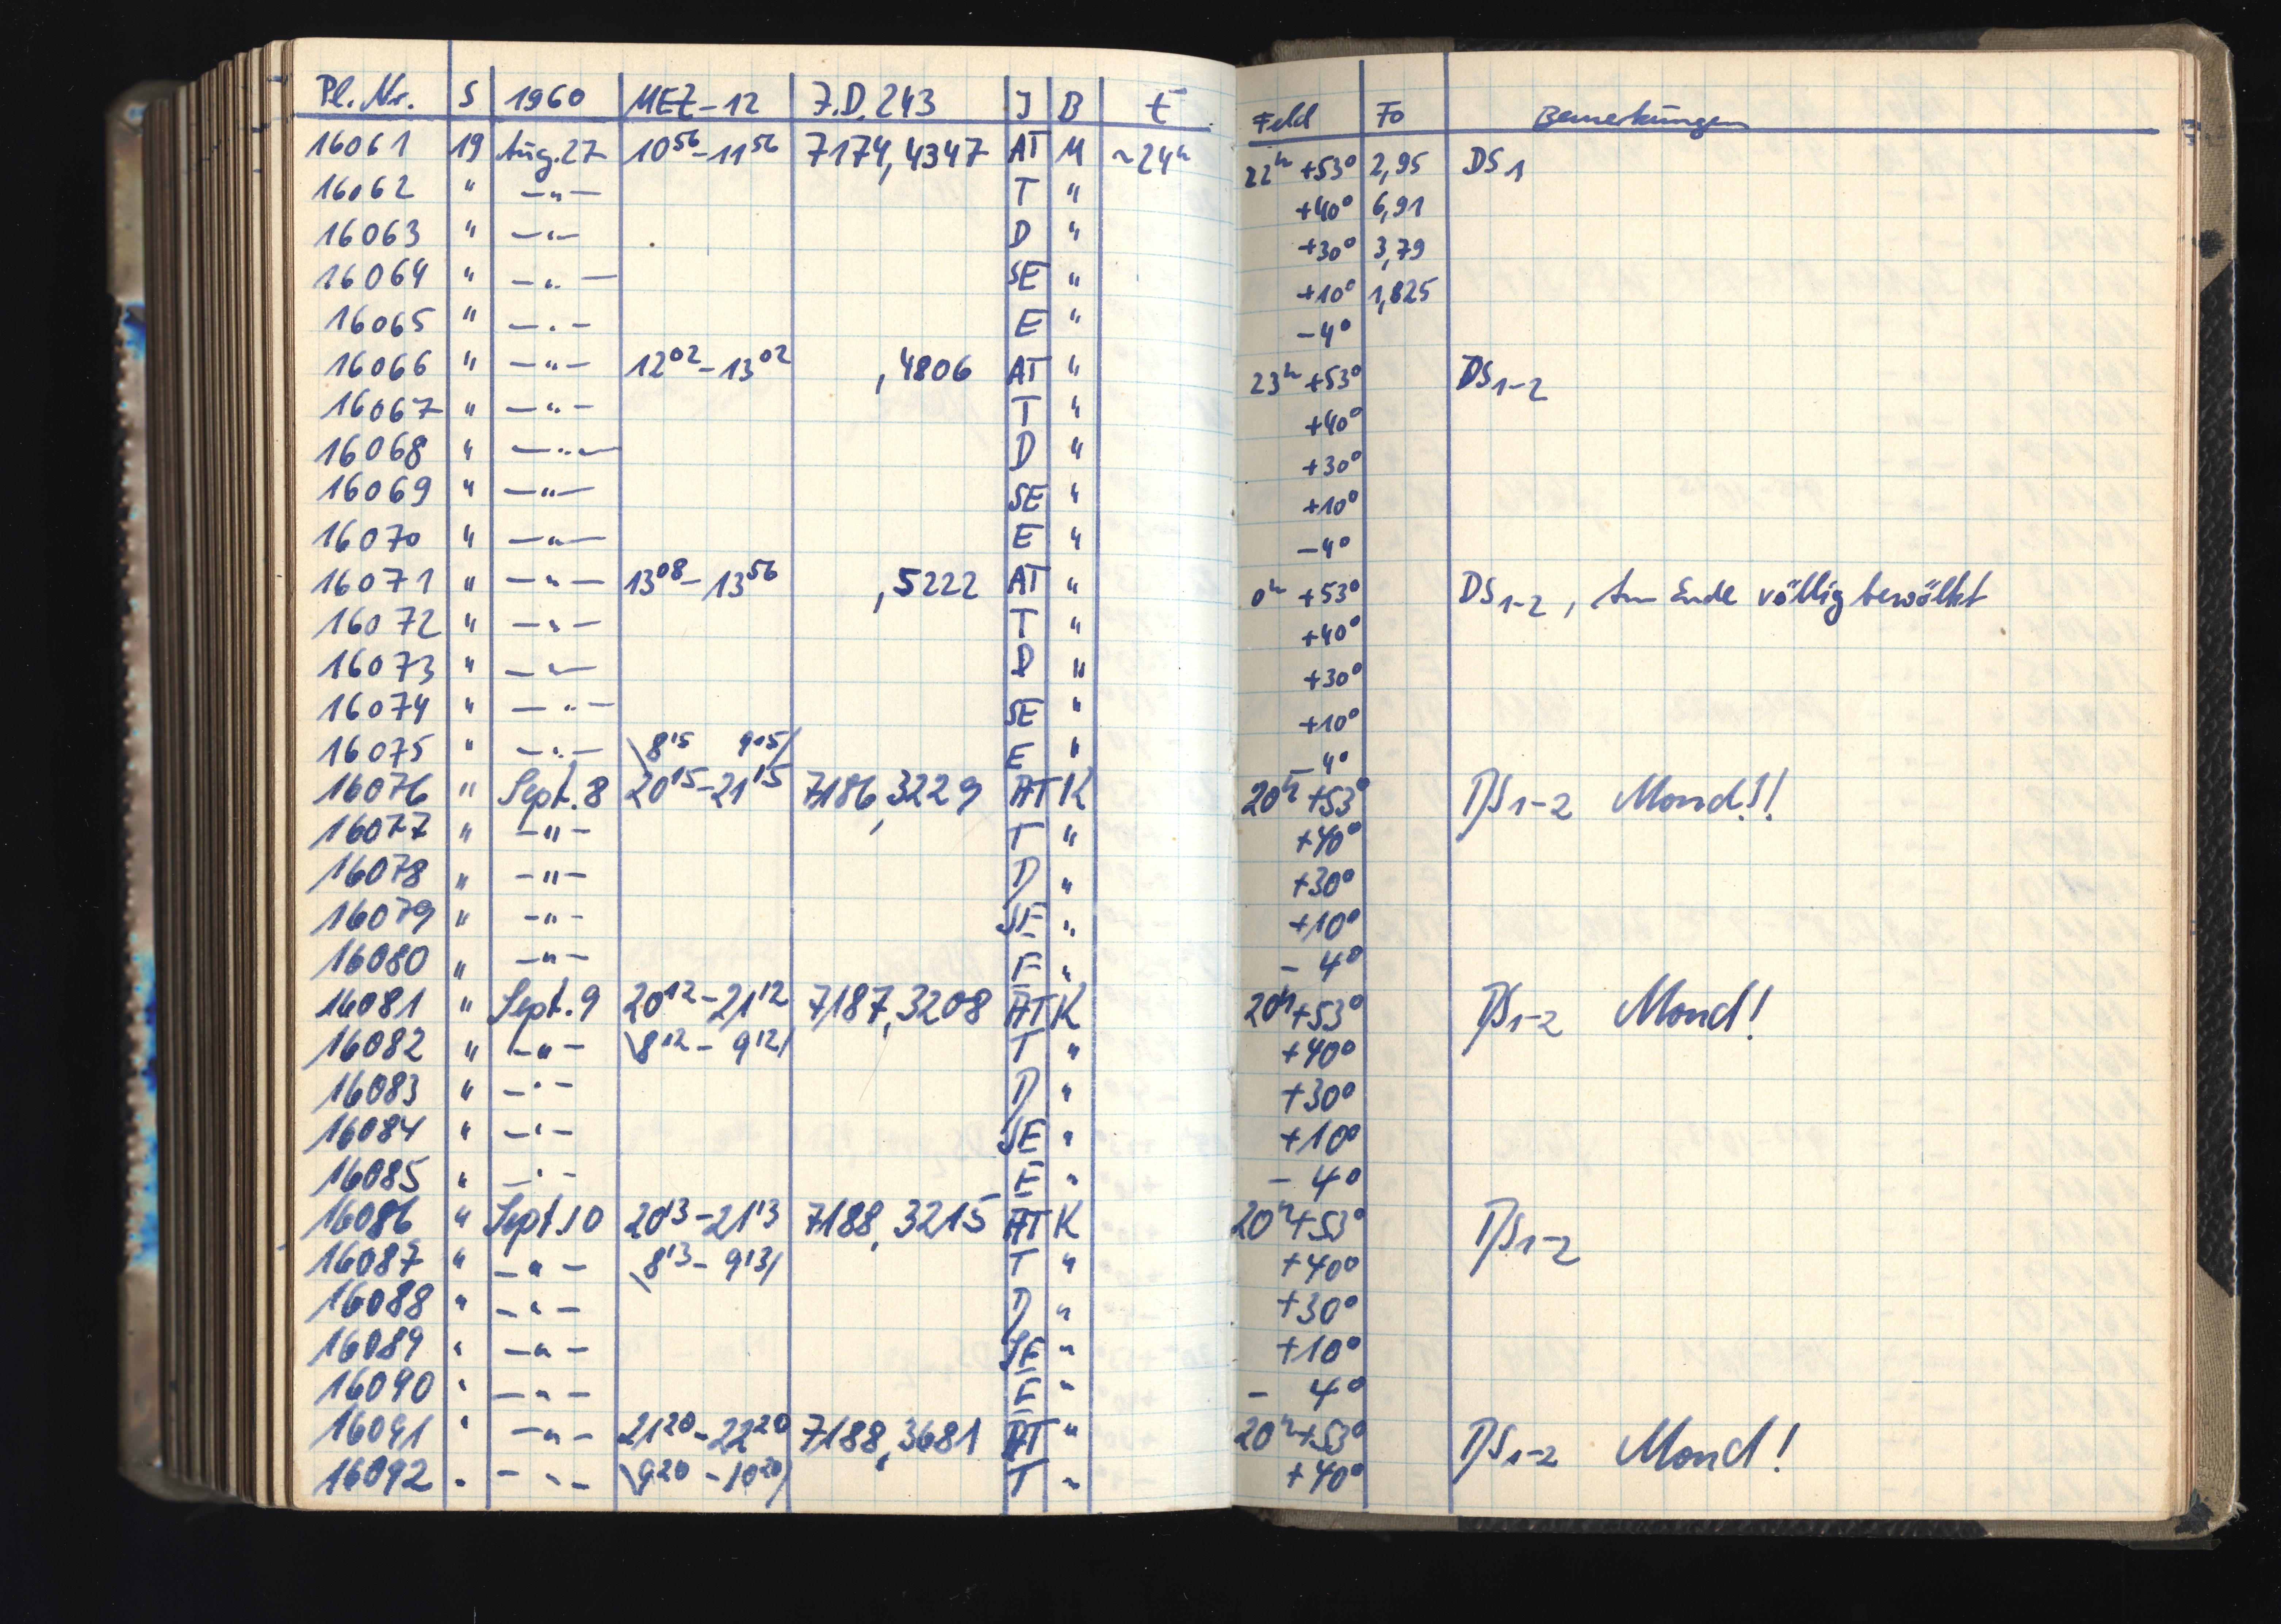 Pl. Nr. S 1960 MEZ-12 J.D. 243 J B t Feld Fo Bemerkungen
16061 19 Aug. 27 10⁵⁶-11⁵⁶ 7174,4347 AT M ~24ʰ 22ʰ +53° 2,95 DS₁
16062 " -"- T " +40° 6,91
16063 " -"- D " +30° 3,79
16064 " -"- SE " +10° 1,825
16065 " -"- E " -4°
16066 " -"- 12⁰²-13⁰² ,4806 AT " 23ʰ +53° DS₁₋₂
16067 " -"- T " +40°
16068 " -"- D " +30°
16069 " -"- SE " +10°
16070 " -"- E " -4°
16071 " -"- 13⁰⁸-13⁵⁶ ,5222 AT " 0ʰ +53° DS₁₋₂, Am Ende völlig bewölkt
16072 " -"- T " +40°
16073 " -"- D " +30°
16074 " -"- SE " +10°
16075 " -"- \8¹⁵ 9¹⁵/ E " -4°
16076 " Sept. 8 20¹⁵-21¹⁵ 7186,3229 AT K 20ʰ +53° DS₁₋₂ Mond!!
16077 " -"- T " +40°
16078 " -"- D " +30°
16079 " -"- SE " +10°
16080 " -"- E " -4°
16081 " Sept. 9 20¹²-21¹² 7187,3208 AT K 20ʰ +53° DS₁₋₂ Mond!
16082 " -"- \8¹²-9¹²/ T " +40°
16083 " -"- D " +30°
16084 " -"- SE " +10°
16085 " -"- E " -4°
16086 " Sept. 10 20¹³-21¹³ 7188,3215 AT K 20ʰ +53° DS₁₋₂
16087 " -"- \8¹³-9¹³/ T " +40°
16088 " -"- D " +30°
16089 " -"- SE " +10°
16090 " -"- E " -4°
16091 " -"- 21²⁰-22²⁰ 7188,3681 AT " 20ʰ +53° DS₁₋₂ Mond!
16092 " -"- \9²⁰-10²⁰/ T " +40°